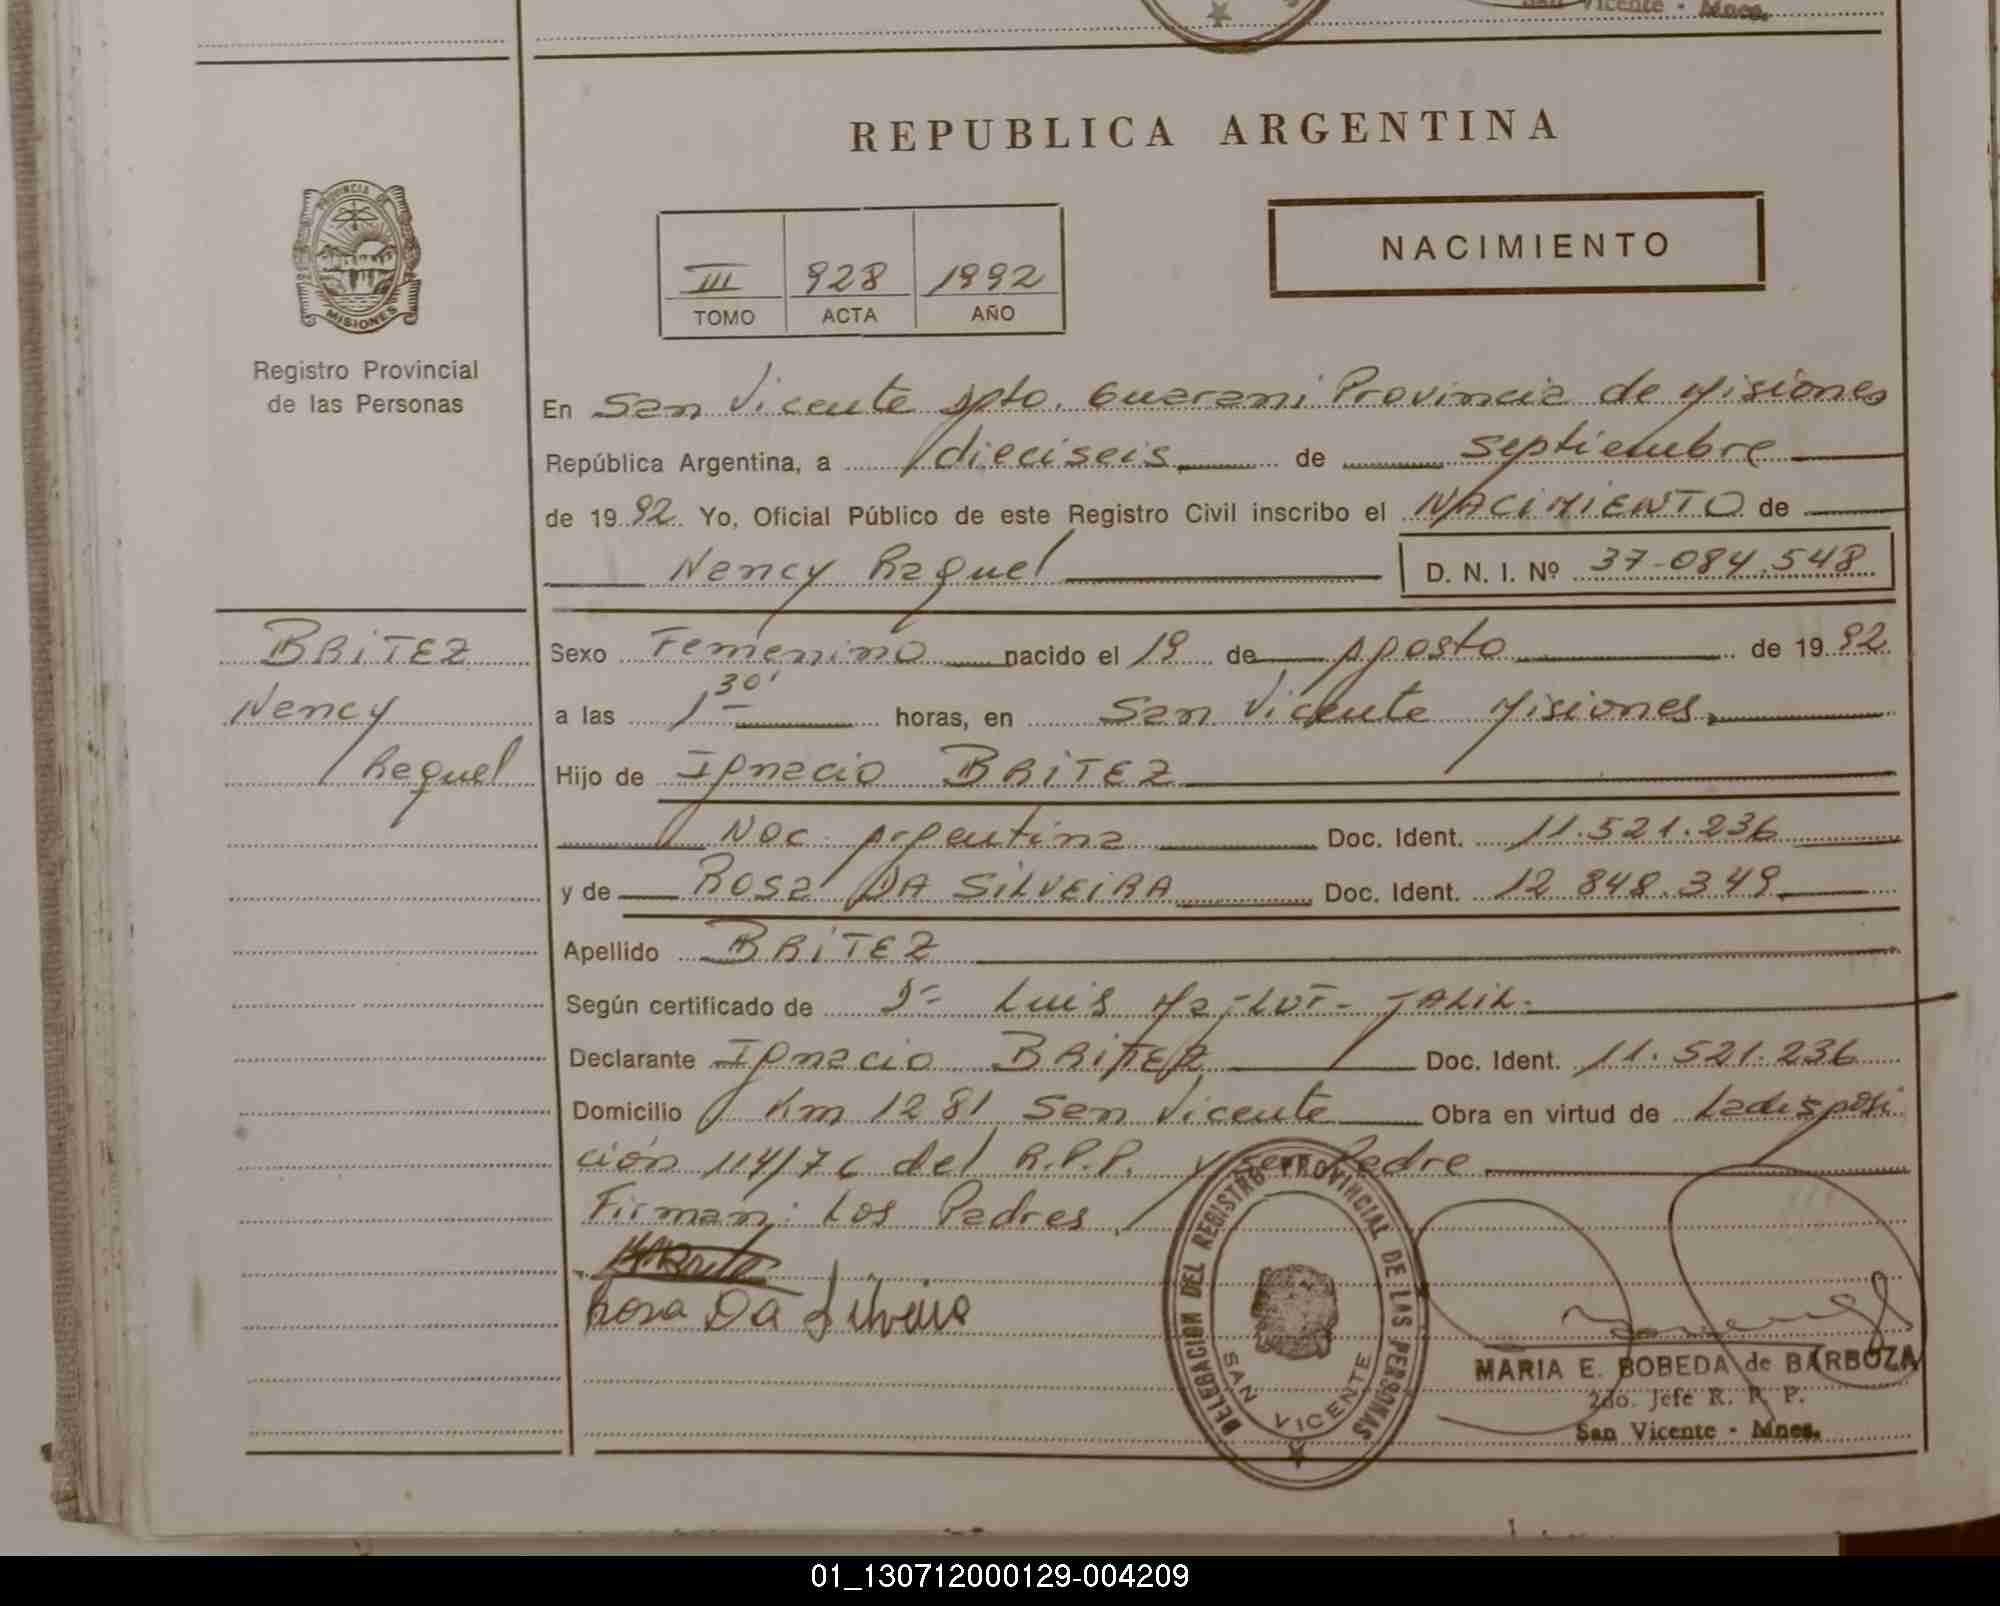 San Vicente - Mnes.
REPUBLICA ARGENTINA
PROVINCIA DE
MISIONES
Registro Provincial
de las Personas
NACIMIENTO
III 928 1992
TOMO ACTA AÑO
En San Vicente Dpto. Guarani Provincia de Misiones
República Argentina, a dieciseis de septiembre
de 1992 Yo, Oficial Público de este Registro Civil inscribo el NACIMIENTO de
Nancy Raquel D. N. I. Nº 37-084.548
BRITEZ
Nancy
Raquel
Sexo Femenino nacido el 19 de Agosto de 1992
a las 1 30' horas, en San Vicente Misiones
Hijo de Ignacio BRITEZ
Nac. Argentina Doc. Ident. 11.521.236
y de Rosa DA SILVEIRA Doc. Ident. 12.848.349
Apellido BRITEZ
Según certificado de Luis JALIL.
Declarante Ignacio BRITEZ Doc. Ident. 11.521.236
Domicilio Km 1281 San Vicente Obra en virtud de La disposi
ción 114/76 del R.P.P. y ser Padre
Firman: Los Padres
Rosa Da Silveira
DELEGACION DEL REGISTRO PROVINCIAL DE LAS PERSONAS
SAN VICENTE
MARIA E. BOBEDA de BARBOZA
2do. Jefe R. P. P.
San Vicente - Mnes.
01_130712000129-004209